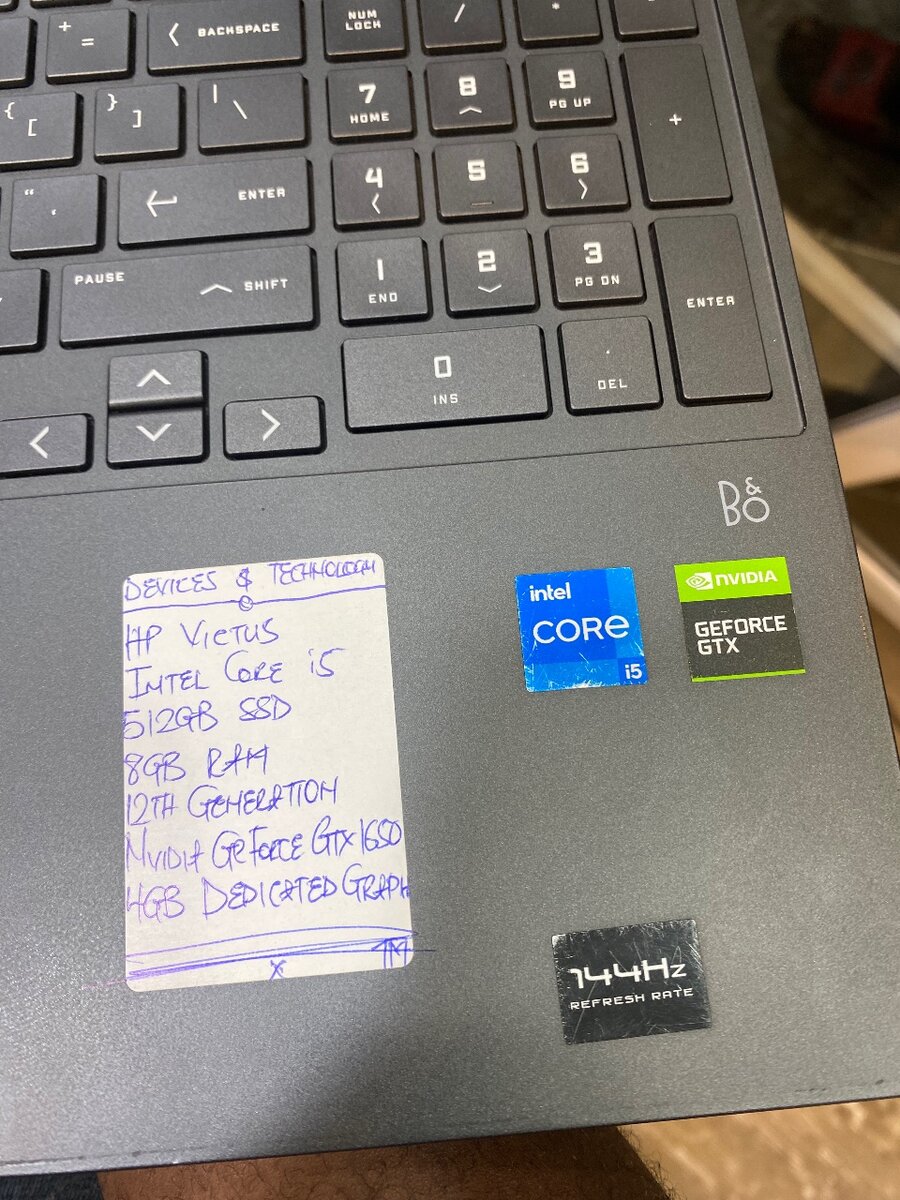 + =
BACKSPACE
NUM LOCK
/
*
-
{ [
} ]
| \
7 HOME
8
9 PG UP
+
" '
ENTER
4
5
6
PAUSE SHIFT
1 END
2
3 PG DN
ENTER
0 INS
. DEL
B&O
DEVICES & TECHNOLOGY
HP VICTUS
INTEL CORE i5
512GB SSD
8GB RAM
12TH GENERATION
NVIDIA GEFORCE GTX 1650
4GB DEDICATED GRAPH
TM
X
intel
CORE
i5
NVIDIA
GEFORCE
GTX
144Hz
REFRESH RATE